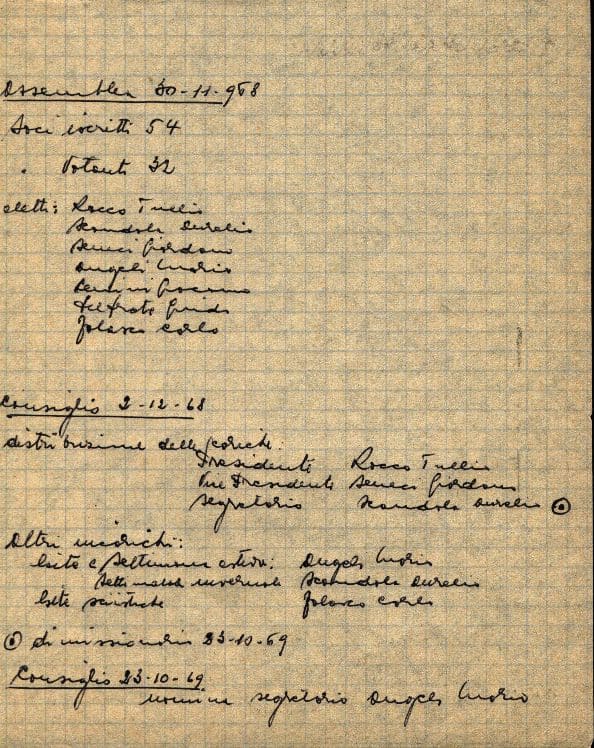 Assemblea 30-11-968
Soci iscritti 54
" Votanti 32
eletti: Rocco Tullio
Scandola Aurelio
Seneci Giordano
Angeli Mario
Giacomo
Del Prato Guido
Folasco Carlo
Consiglio 2-12-68
distribuzione delle cariche:
Presidente Rocco Tullio
Vice Presidente Seneci Giordano
Segretario Scandola Aurelio ⊙
Altri incarichi:
Gite e Settimana estiva: Angeli Mario
Settimana invernale Scandola Aurelio
Gite sciistiche Folasco Carlo
⊙ dimissionario 23-10-69
Consiglio 23-10-69
nomina segretario Angeli Mario